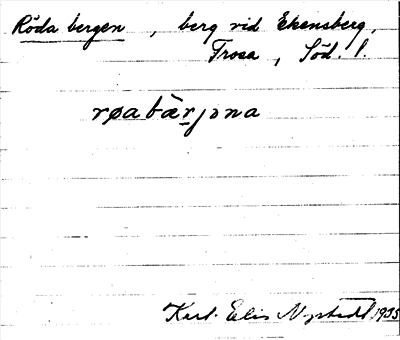 Röda bergen, berg vid Ekensberg,
Trosa, Söd. l.
røabærjəna
Karl-Elis Nystedt 1935